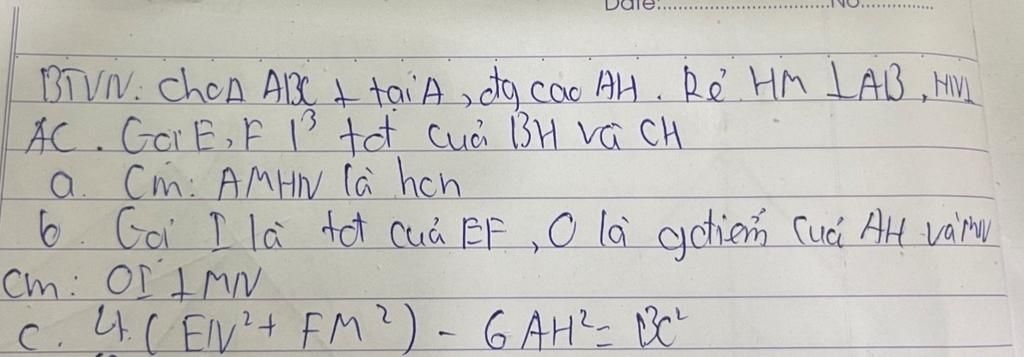 Date:...............No...............
BTVN: Cho Δ ABC ⊥ tại A, đg cao AH. Kẻ HM ⊥ AB, HN ⊥
AC. Gọi E, F l³ tđt của BH và CH
a. Cm: AMHN là hcn
b. Gọi I là tđt của EF, O là gđiểm của AH và MN
Cm: OI ⊥ MN
c. 4.(EN² + FM²) - 6AH² = BC²